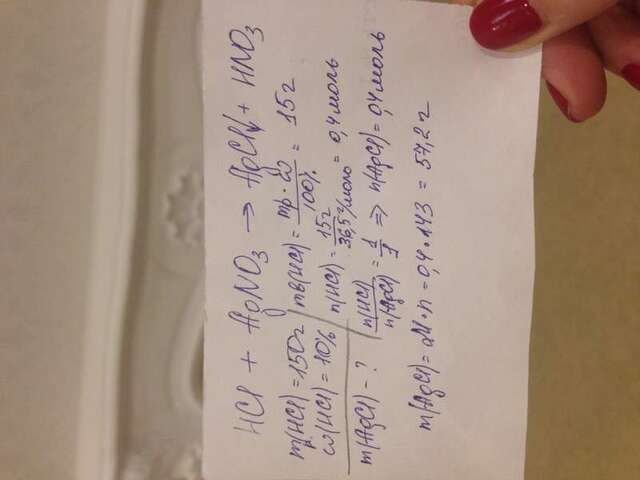 HCl + AgNO₃ → AgCl↓ + HNO₃
mр(HCl) = 150г
ω(HCl) = 10%
m(AgCl) - ?
mв(HCl) = mр · ω / 100% = 15г
n(HCl) = 15г / 36,5г/моль = 0,4 моль
n(HCl) / n(AgCl) = 1 / 1 ⇒ n(AgCl) = 0,4 моль
m(AgCl) = M · n = 0,4 · 143 = 57,2 г